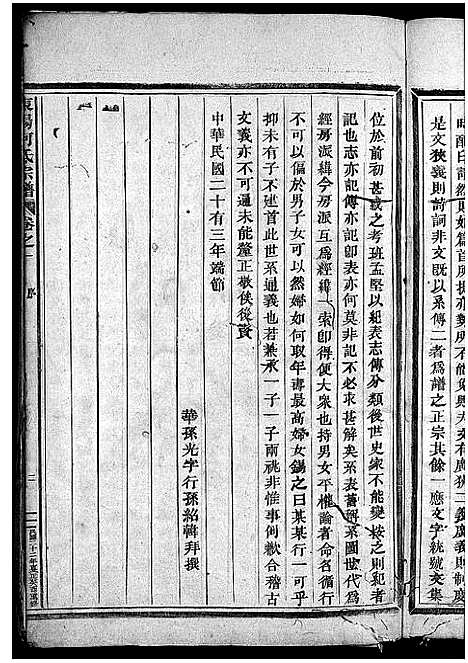 是文狹義則詩詞非文既以系傳二者爲譜之正宗其餘一應文字統號文集
位於前初甚哉之考班孟堅以紀表志傳分類後世史家不能變按之則犯者
記也志亦記傳亦記卽表亦何莫非記不必求甚解矣系表舊稱系圖世代爲
經房派緯今房派互爲經緯一索卽得便大衆也持男女平權論者命名循行
不可以偏於男子女可以然婦如何取年壽最高婦女錫之曰某某行一可乎
抑未有子不建首此世系通義也若兼承一子一子兩祧非惟事何歉合稽古
文義亦不可通未能釐正敬俟後賢
中華民國二十有三年端節
華孫光字行孫紹韓拜撰
氏宗譜
卷之一
序